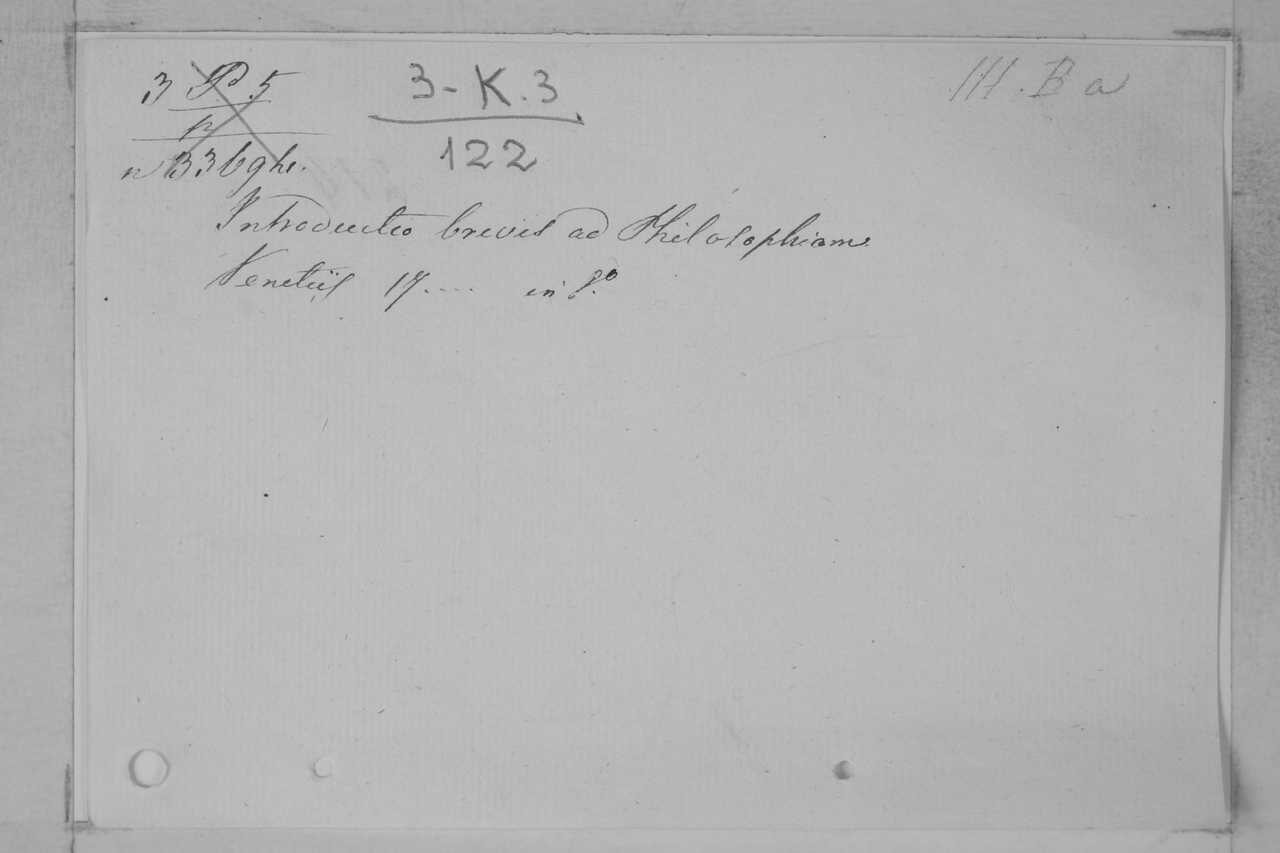 3 P 5
3-K.3
III. B a
n
122
n 336 9 he.
Introductio brevis ad Philosophiam
Venetiis 17.... in 8.º